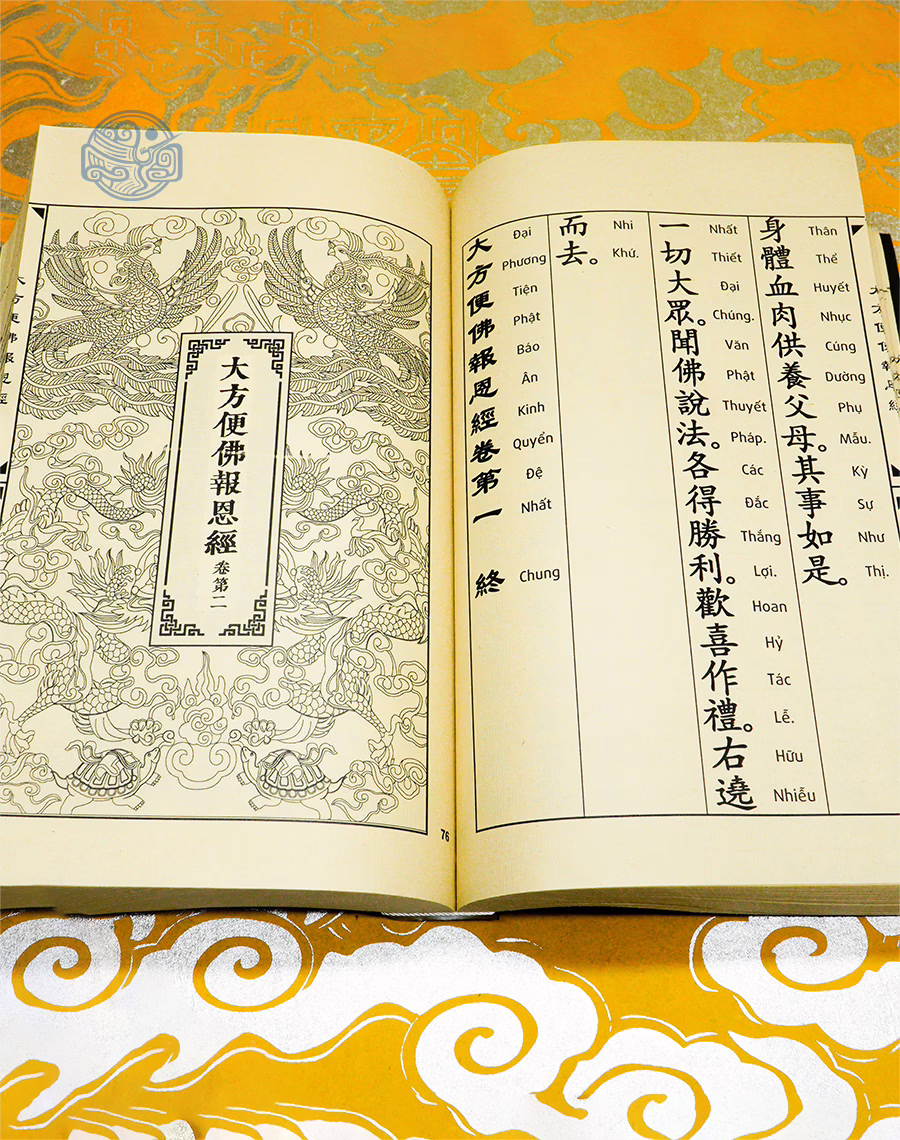 大方便佛報恩經
身體血肉供養父母。其事如是。
Thân Thể Huyết Nhục Cúng Dường Phụ Mẫu. Kỳ Sự Như Thị.
一切大眾。聞佛說法。各得勝利。歡喜作禮。右遶
Nhất Thiết Đại Chúng. Văn Phật Thuyết Pháp. Các Đắc Thắng Lợi. Hoan Hỷ Tác Lễ. Hữu Nhiễu
而去。
Nhi Khứ.
大方便佛報恩經卷第一 終
Đại Phương Tiện Phật Báo Ân Kinh Quyển Đệ Nhất Chung
大方便佛報恩經 卷第二
大方便佛報恩經
76